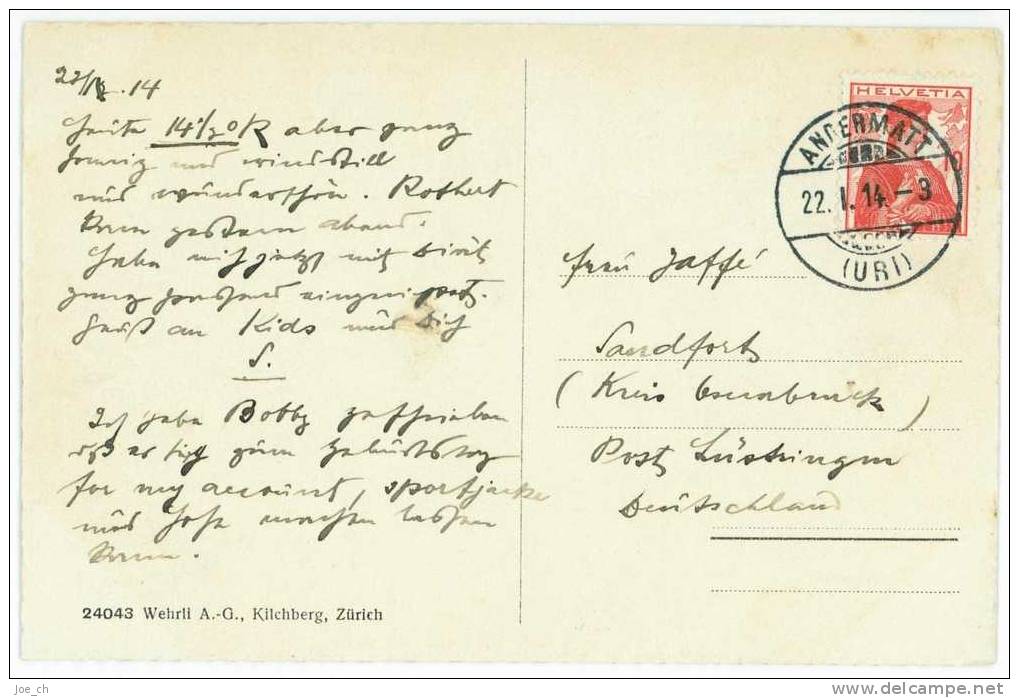 22/I.14
Heute 14 1/2° R aber ganz
sonnig und windstill
und wunderschön. Robbert
kam gestern abend.
Habe mich jetzt mit
ganz passend eingerichtet.
Gruß an Kids und Dich
S.
Ich habe Bobby geschrieben
daß er sich zum Geburtstag
for my account, sportjacke
und Hose machen lassen
kann.
24043 Wehrli A.-G., Kilchberg, Zürich
HELVETIA
ANDERMATT
22. I. 14. – 3
(URI)
Frau Jaffé
Sandfort
(Kreis Osnabrück)
Post Lüstringen
Deutschland
joe_ch
www.delcampe.net